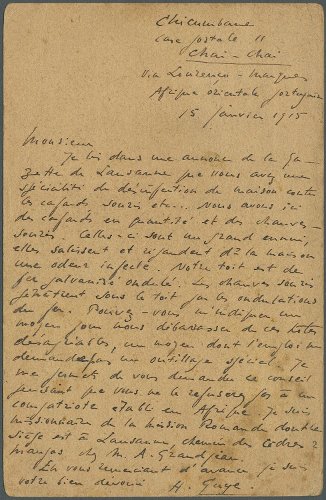 Chicumbane
case postale 11
Chai-Chai
via Lourenço-Marques
Afrique orientale portugaise
15 janvier 1915
Monsieur
Je lis dans une annonce de la Ga-
zette de Lausanne que vous avez une
spécialité de désinfection de maison contre
les cafards souris etc... Nous avons ici
des cafards en quantité et des chauves-
souris. Celles-ci sont un grand ennui,
elles salissent et répandent ds la maison
une odeur infecte. Notre toit est de
fer galvanisé ondulé. Les chauves souris
pénètrent sous le toit par les ondulations
du fer. Pouvez-vous m'indiquer un
moyen pour nous débarrasser de ces bêtes
désagréables, un moyen dont l'emploi ne
demande pas un outillage spécial. Je
me permets de vous demander ce conseil
pensant que vous ne le refuserez pas à un
compatriote établi en Afrique. Je suis
missionnaire de la mission Romande dont le
siège est à Lausanne, chemin des Cèdres
français chez M. A. Grandjean
En vous remerciant d'avance je suis
votre bien dévoué H. Guye.